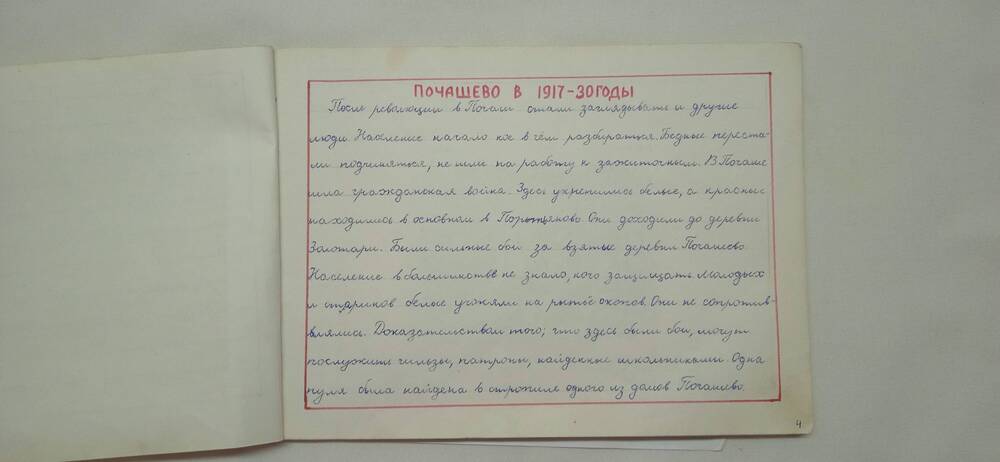 ПОЧАШЕВО В 1917-30 ГОДЫ
После революции в Почаш стали заглядывать и другие
люди. Население начало кое в чём разбираться. Бедные переста-
ли подчиняться, не шли на работу к зажиточным. В Почаше
шла гражданская война. Здесь укрепились белые, а красные
находились в основном в Они доходили до деревни
Золотари. Были сильные бои за взятые деревни Почашево.
Население в большинстве не знало, кого защищать. Молодых
и стариков белые угоняли на рытьё окопов. Они не сопротив-
влялись. Доказательством того, что здесь были бои, могут
послужить гильзы, патроны, найденные школьниками. Одна
пуля была найдена в стропиле одного из домов Почашево.
4